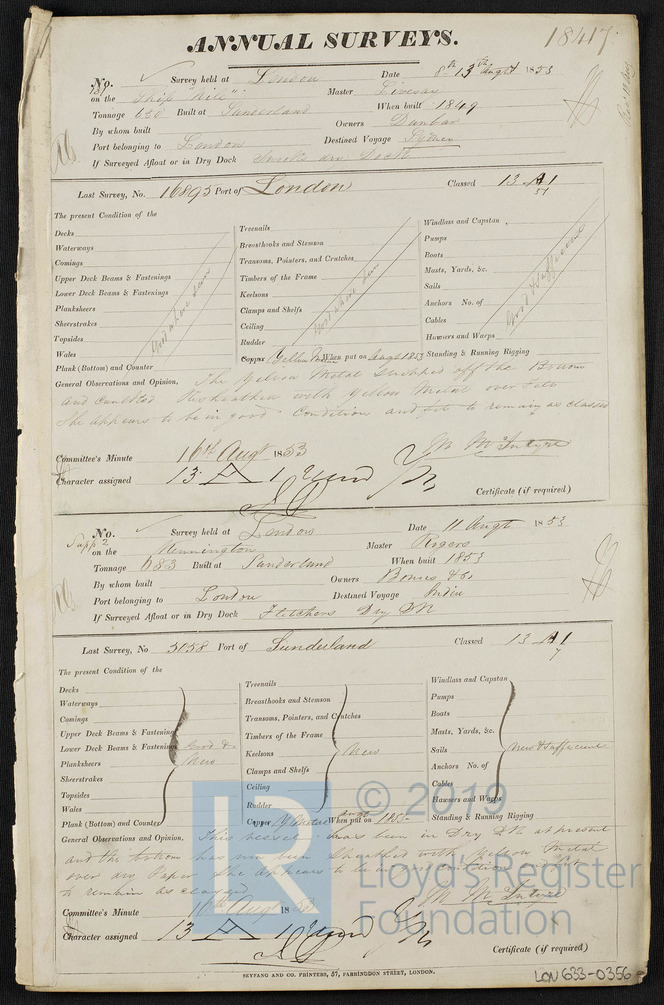 18417
ANNUAL SURVEYS.
No. 189 Survey held at London Date 8th 13th Augt 1853
on the Ship "Nile" Master Livesay
Tonnage 650 Built at Sunderland When built 1849
By whom built Owners Dunbar
Port belonging to London Destined Voyage Sydney
If Surveyed Afloat or in Dry Dock Dock
Last Survey, No. 16895 Port of London Classed 13 A1
51
The present Condition of the
Decks
Waterways
Comings
Upper Deck Beams & Fastenings
Lower Deck Beams & Fastenings
Planksheers
Sheerstrakes
Topsides
Wales
Plank (Bottom) and Counter
Good where seen
Treenails
Breasthooks and Stemson
Transoms, Pointers, and Crutches
Timbers of the Frame
Keelsons
Clamps and Shelfs
Ceiling
Rudder
Copper Yellow Metal When put on Augt 1853
Good where seen
Windlass and Capstan
Pumps
Boats
Masts, Yards, &c.
Sails
Anchors No. of
Cables
Hawsers and Warps
Standing & Running Rigging
Good & Sufficient
General Observations and Opinion, The Yellow Metal stripped off the Bottom
and Caulked Resheathed with Yellow Metal over Felt
She appears to be in good Condition and fit to remain as classed
M. McIntyre
Committee's Minute 16th Augt 1853
Character assigned 13 A 1
Certificate (if required)
No. Survey held at London Date 11 Augt 1853
Supp 2 on the Kennington Master Rogers
Tonnage 683 Built at Sunderland When built 1853
By whom built Owners &Co.
Port belonging to London Destined Voyage India
If Surveyed Afloat or in Dry Dock Fletchers Dry Dk
Last Survey, No 5058 Port of Sunderland Classed 13 A1
7
The present Condition of the
Decks
Waterways
Comings
Upper Deck Beams & Fastenings
Lower Deck Beams & Fastenings
Planksheers
Sheerstrakes
Topsides
Wales
Plank (Bottom) and Counter
Good &
New
Treenails
Breasthooks and Stemson
Transoms, Pointers, and Crutches
Timbers of the Frame
Keelsons
Clamps and Shelfs
Ceiling
Rudder
Copper Y Metal When put on Augt 1853
New
Windlass and Capstan
Pumps
Boats
Masts, Yards, &c.
Sails
Anchors No. of
Cables
Hawsers and Warps
Standing & Running Rigging
New & Sufficient
General Observations and Opinion, This vessel has been in Dry Dk at present
and the bottom has now been Sheathed with Yellow Metal
over Paper She appears to be in good condition and fit
to remain as classed
M. McIntyre
Committee's Minute 16th Augt 1853
Character assigned 13 A 1
Certificate (if required)
SEYFANG AND CO. PRINTERS, 57, FARRINGDON STREET, LONDON.
LON 633-0356
LR
© 2019
Lloyd's Register
Foundation